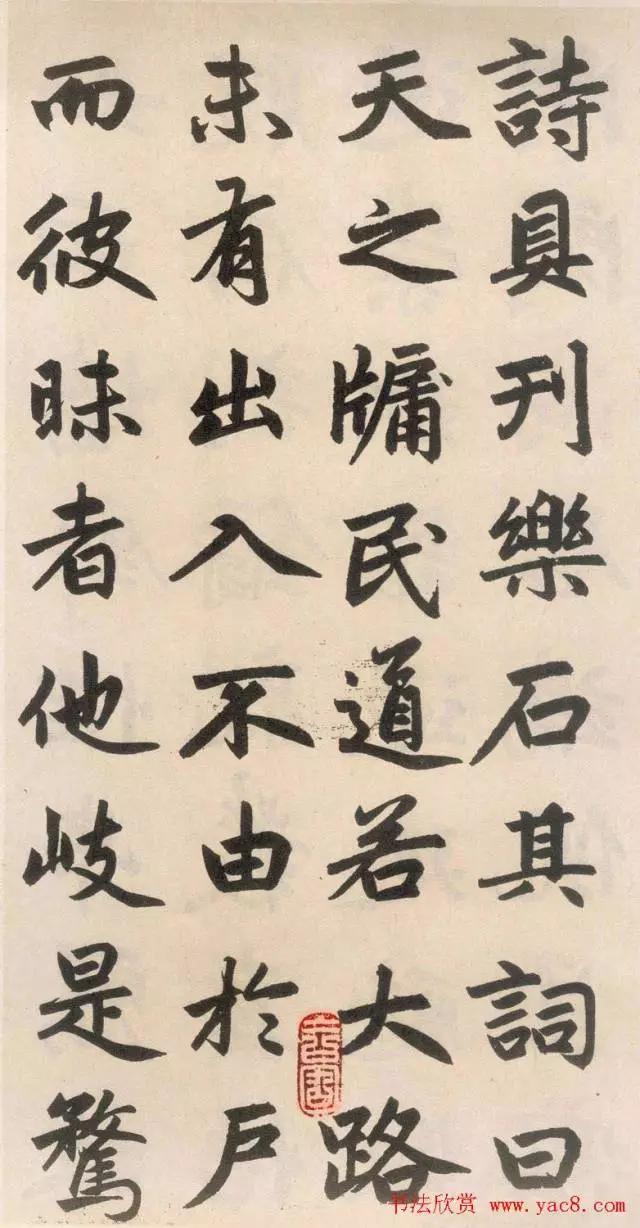 詩具刊樂石其詞曰
天之牖民道若大路
未有出入不由於戶
而彼昧者他岐是騖
书法欣赏 www.yac8.com